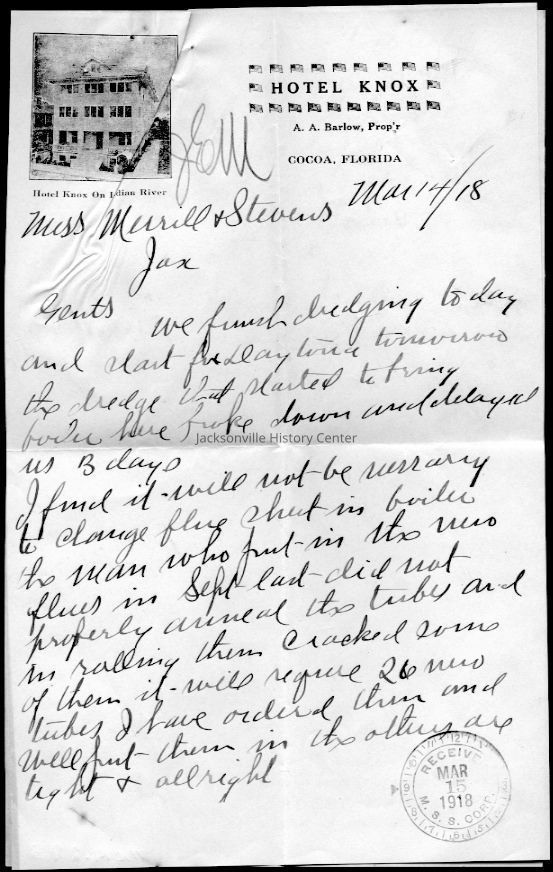 HOTEL KNOX
A. A. Barlow, Prop'r
COCOA, FLORIDA
Hotel Knox On Idian River
JEM
Mar 14/18
Mess Merrill & Stevens
Jax
Gents we finish dredging today
and start for Daytona tomorrow
the dredge that started to bring
boiler here broke down and delayed
us 3 days
I find it will not be nessarry
to change flue sheet in boiler
the man who put in the new
flues in Sept last did not
properly anneal the tubes and
in rolling them cracked some
of them it will require 26 new
tubes I have ordered them and
will put them in the others are
tight & allright
Jacksonville History Center
RECEIVE
MAR
15
1918
M. S. S. CORP.